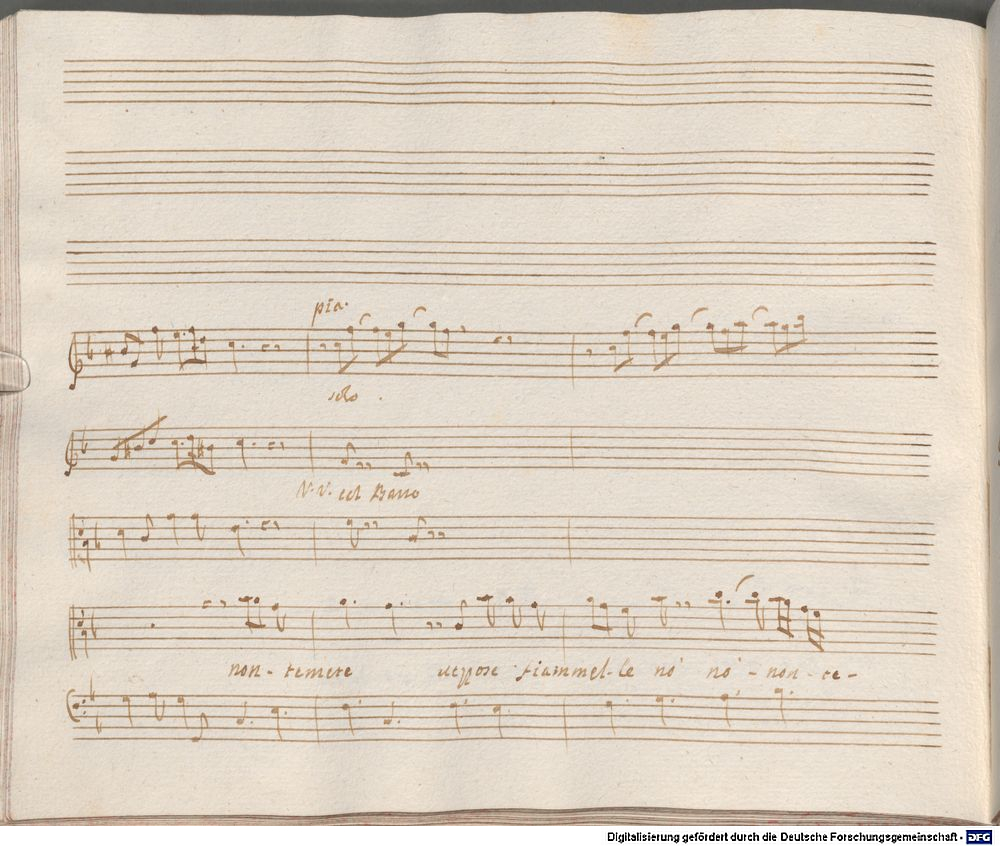 pia.
solo.
V. V. col Basso
non - temete vezzose fiammel - le nò nò - non - te -
Digitalisierung gefördert durch die Deutsche Forschungsgemeinschaft - DFG